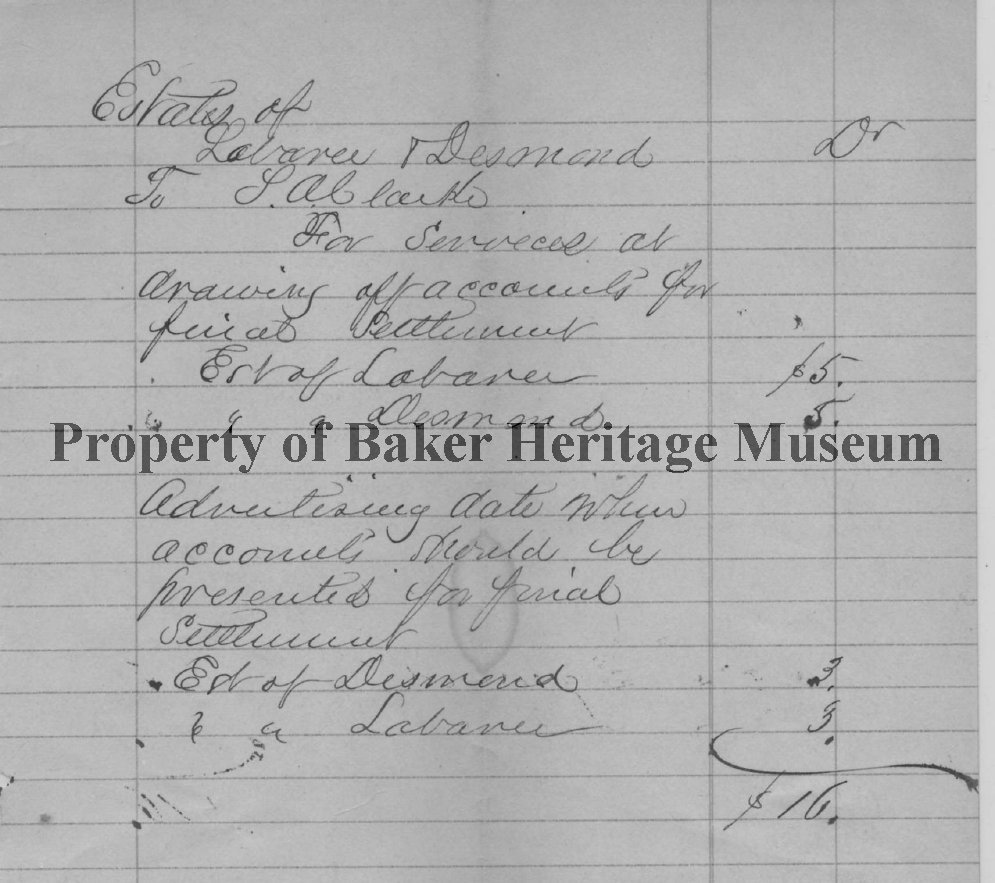 Estates of
Labaree & Desmond Dr
To S. A. Clarke
For Services at
drawing off accounts for
final Settlement
Est of Labaree $5.
" " " Desmond 5.
Property of Baker Heritage Museum
Advertising date when
accounts should be
presented for final
Settlement
Est of Desmond 3.
" " Labaree 3.
$16.